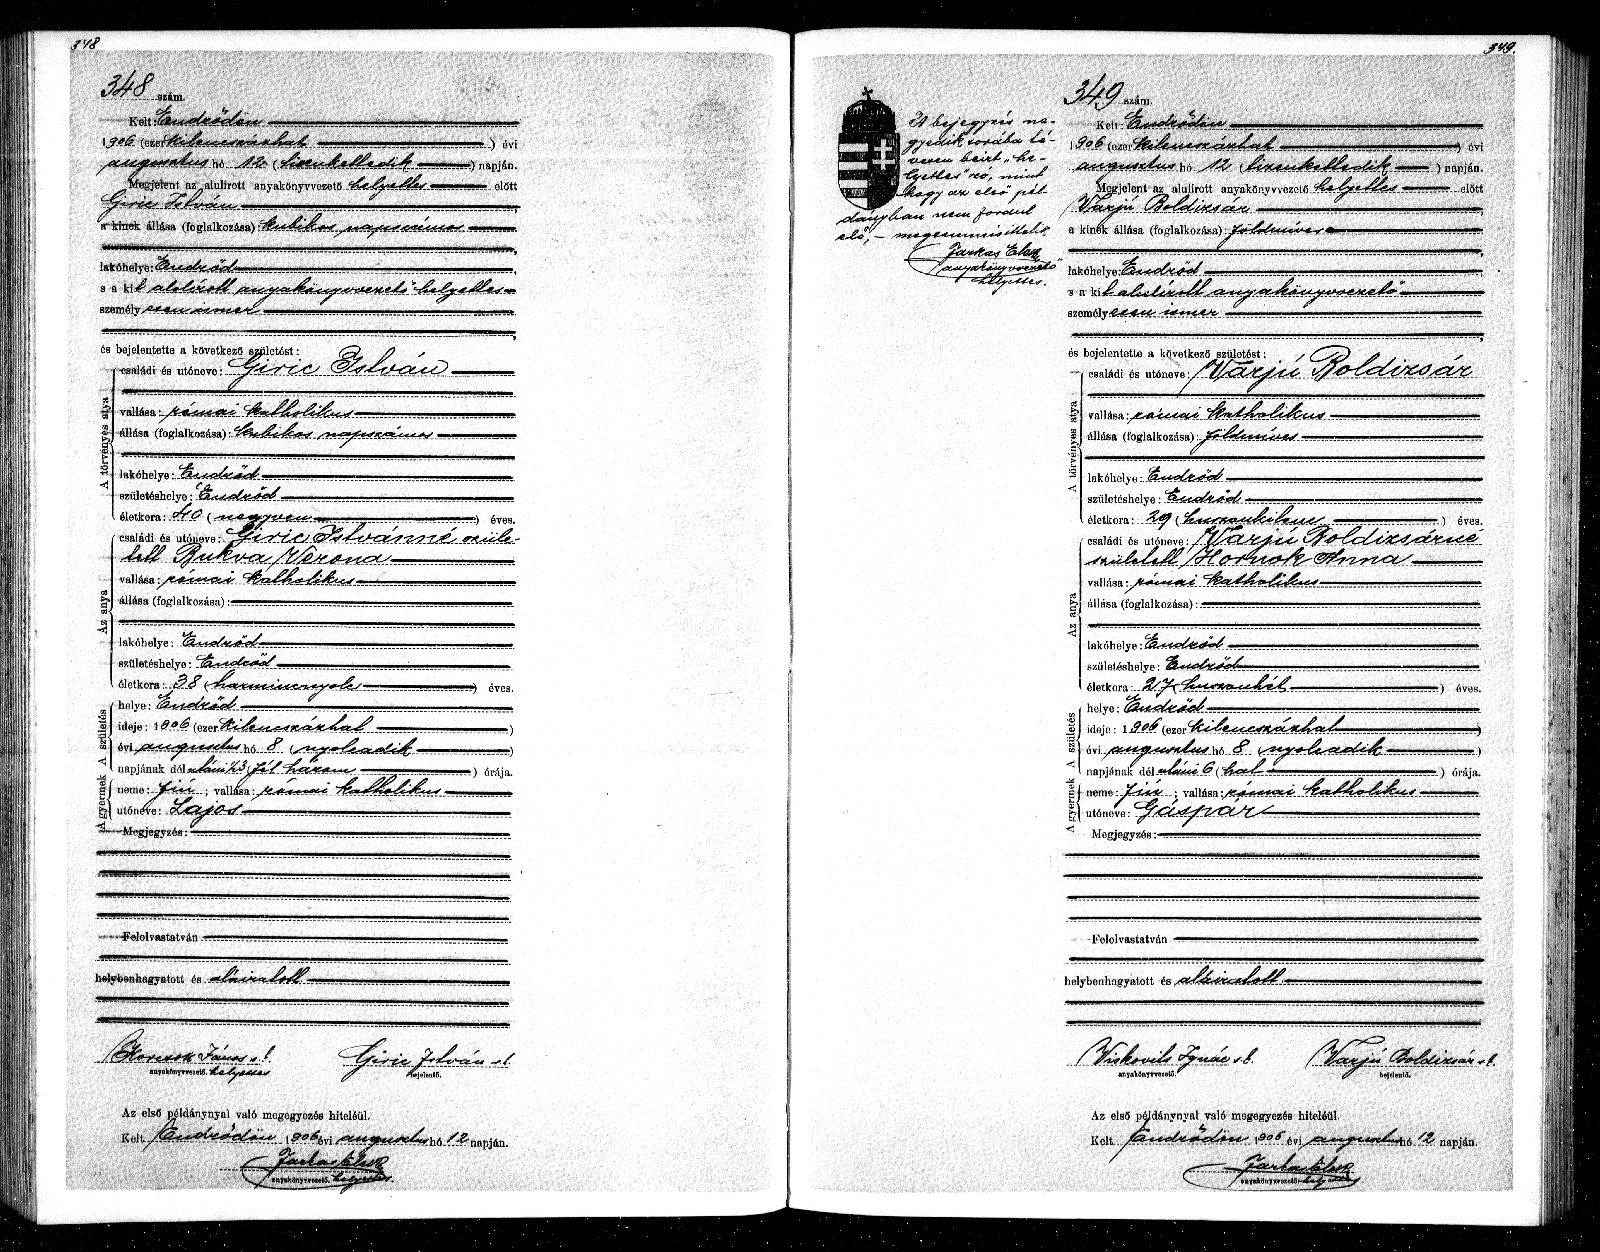 348
348 szám.
Kelt: Endrődön
1906 (ezer kilencszázhat) évi
augusztus hó 12 (tizenkettedik) napján.
Megjelent az alulirott anyakönyvvezető helyettes előtt
Giric István
a kinek állása (foglalkozása): kubikos napszámos
lakóhelye: Endrőd
s a kit alulírott anyakönyvvezető helyettes
személyesen ismer
és bejelentette a következő születést:
A törvényes atya
családi és utóneve: Giric István
vallása: római katholikus
állása (foglalkozása): kubikos napszámos
lakóhelye: Endrőd
születéshelye: Endrőd
életkora: 40 (negyven) éves.
Az anya
családi és utóneve: Giric Istvánné szüle-
tett Bukva Verona
vallása: római katholikus
állása (foglalkozása):
lakóhelye: Endrőd
születéshelye: Endrőd
életkora: 38 (harmincnyolc) éves.
A gyermek A születés
helye: Endrőd
ideje: 1906 (ezer kilencszázhat)
évi augusztus hó 8 (nyolcadik)
napjának dél utáni ½3 (fél három) órája.
neme: fiú; vallása: római katholikus
utóneve: Lajos
Megjegyzés:
Felolvastatván
helybenhagyatott és aláiratott
János s.k. Giric István s.k.
anyakönyvvezető. helyettes bejelentő.
Az első példánynyal való megegyezés hiteléül.
Kelt Endrődön 1906 évi augusztus hó 12 napján.
Farkas Elek
anyakönyvvezető. helyettes.
349.
A bejegyzés ne-
gyedik sorába té-
vesen beirt „he-
lyettes" szó, mint
hogy az első pél
dányban nem fordul
elő, – megsemmisíttetik
Farkas Elek
anyakönyvvezető
helyettes.
349 szám.
Kelt Endrődön
1906 (ezer kilencszázhat) évi
augusztus hó 12 (tizenkettedik) napján.
Megjelent az alulirott anyakönyvvezető helyettes előtt
Varjú Boldizsár
a kinek állása (foglalkozása): földmíves
lakóhelye: Endrőd
s a kit alulírott anyakönyvvezető
személyesen ismer
és bejelentette a következő születést:
A törvényes atya
családi és utóneve: Varjú Boldizsár
vallása: római katholikus
állása (foglalkozása): földmíves
lakóhelye: Endrőd
születéshelye: Endrőd
életkora: 29 (huszonkilenc) éves.
Az anya
családi és utóneve: Varjú Boldizsárné
született Hornok Anna
vallása: római katholikus
állása (foglalkozása):
lakóhelye: Endrőd
születéshelye: Endrőd
életkora: 27 (huszonhét) éves.
A gyermek A születés
helye: Endrőd
ideje: 1906 (ezer kilencszázhat)
évi augusztus hó 8 (nyolcadik)
napjának dél utáni 6 (hat) órája.
neme: fiú; vallása: római katholikus
utóneve: Gáspár
Megjegyzés:
Felolvastatván
helybenhagyatott és aláiratott
Viskovits Ignác s.k. Varjú Boldizsár s.k.
anyakönyvvezető. bejelentő.
Az első példánynyal való megegyezés hiteléül.
Kelt Endrődön 1906 évi augusztus hó 12 napján.
Farkas Elek
anyakönyvvezető helyettes